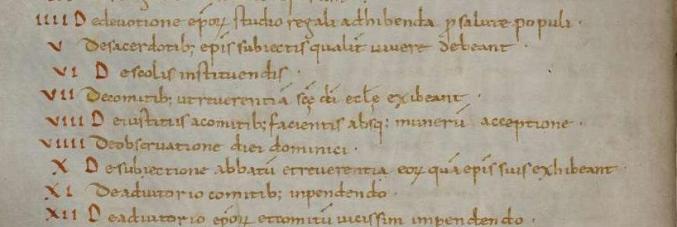 IIII De devotione ep̄or̄ studio regali adhibenda p̄ salute populi.
V De sacerdotib; ep̄is subiectis qualit̄ vivere debeant.
VI De scolis instituendis.
VII De comitib; ut reverentiā sc̄e d̄i eccl̄e exibeant.
VIII De iustitiis a comitib; facientis absq; munerū acceptione.
VIIII De observatione diei dominici.
X De subiectione abbatū et reverentia eor̄ quā ep̄is suis exhibeant.
XI De adiutorio comitib; inpendendo.
XII De adiutorio ep̄or̄ et comitū vicissim impendendo.